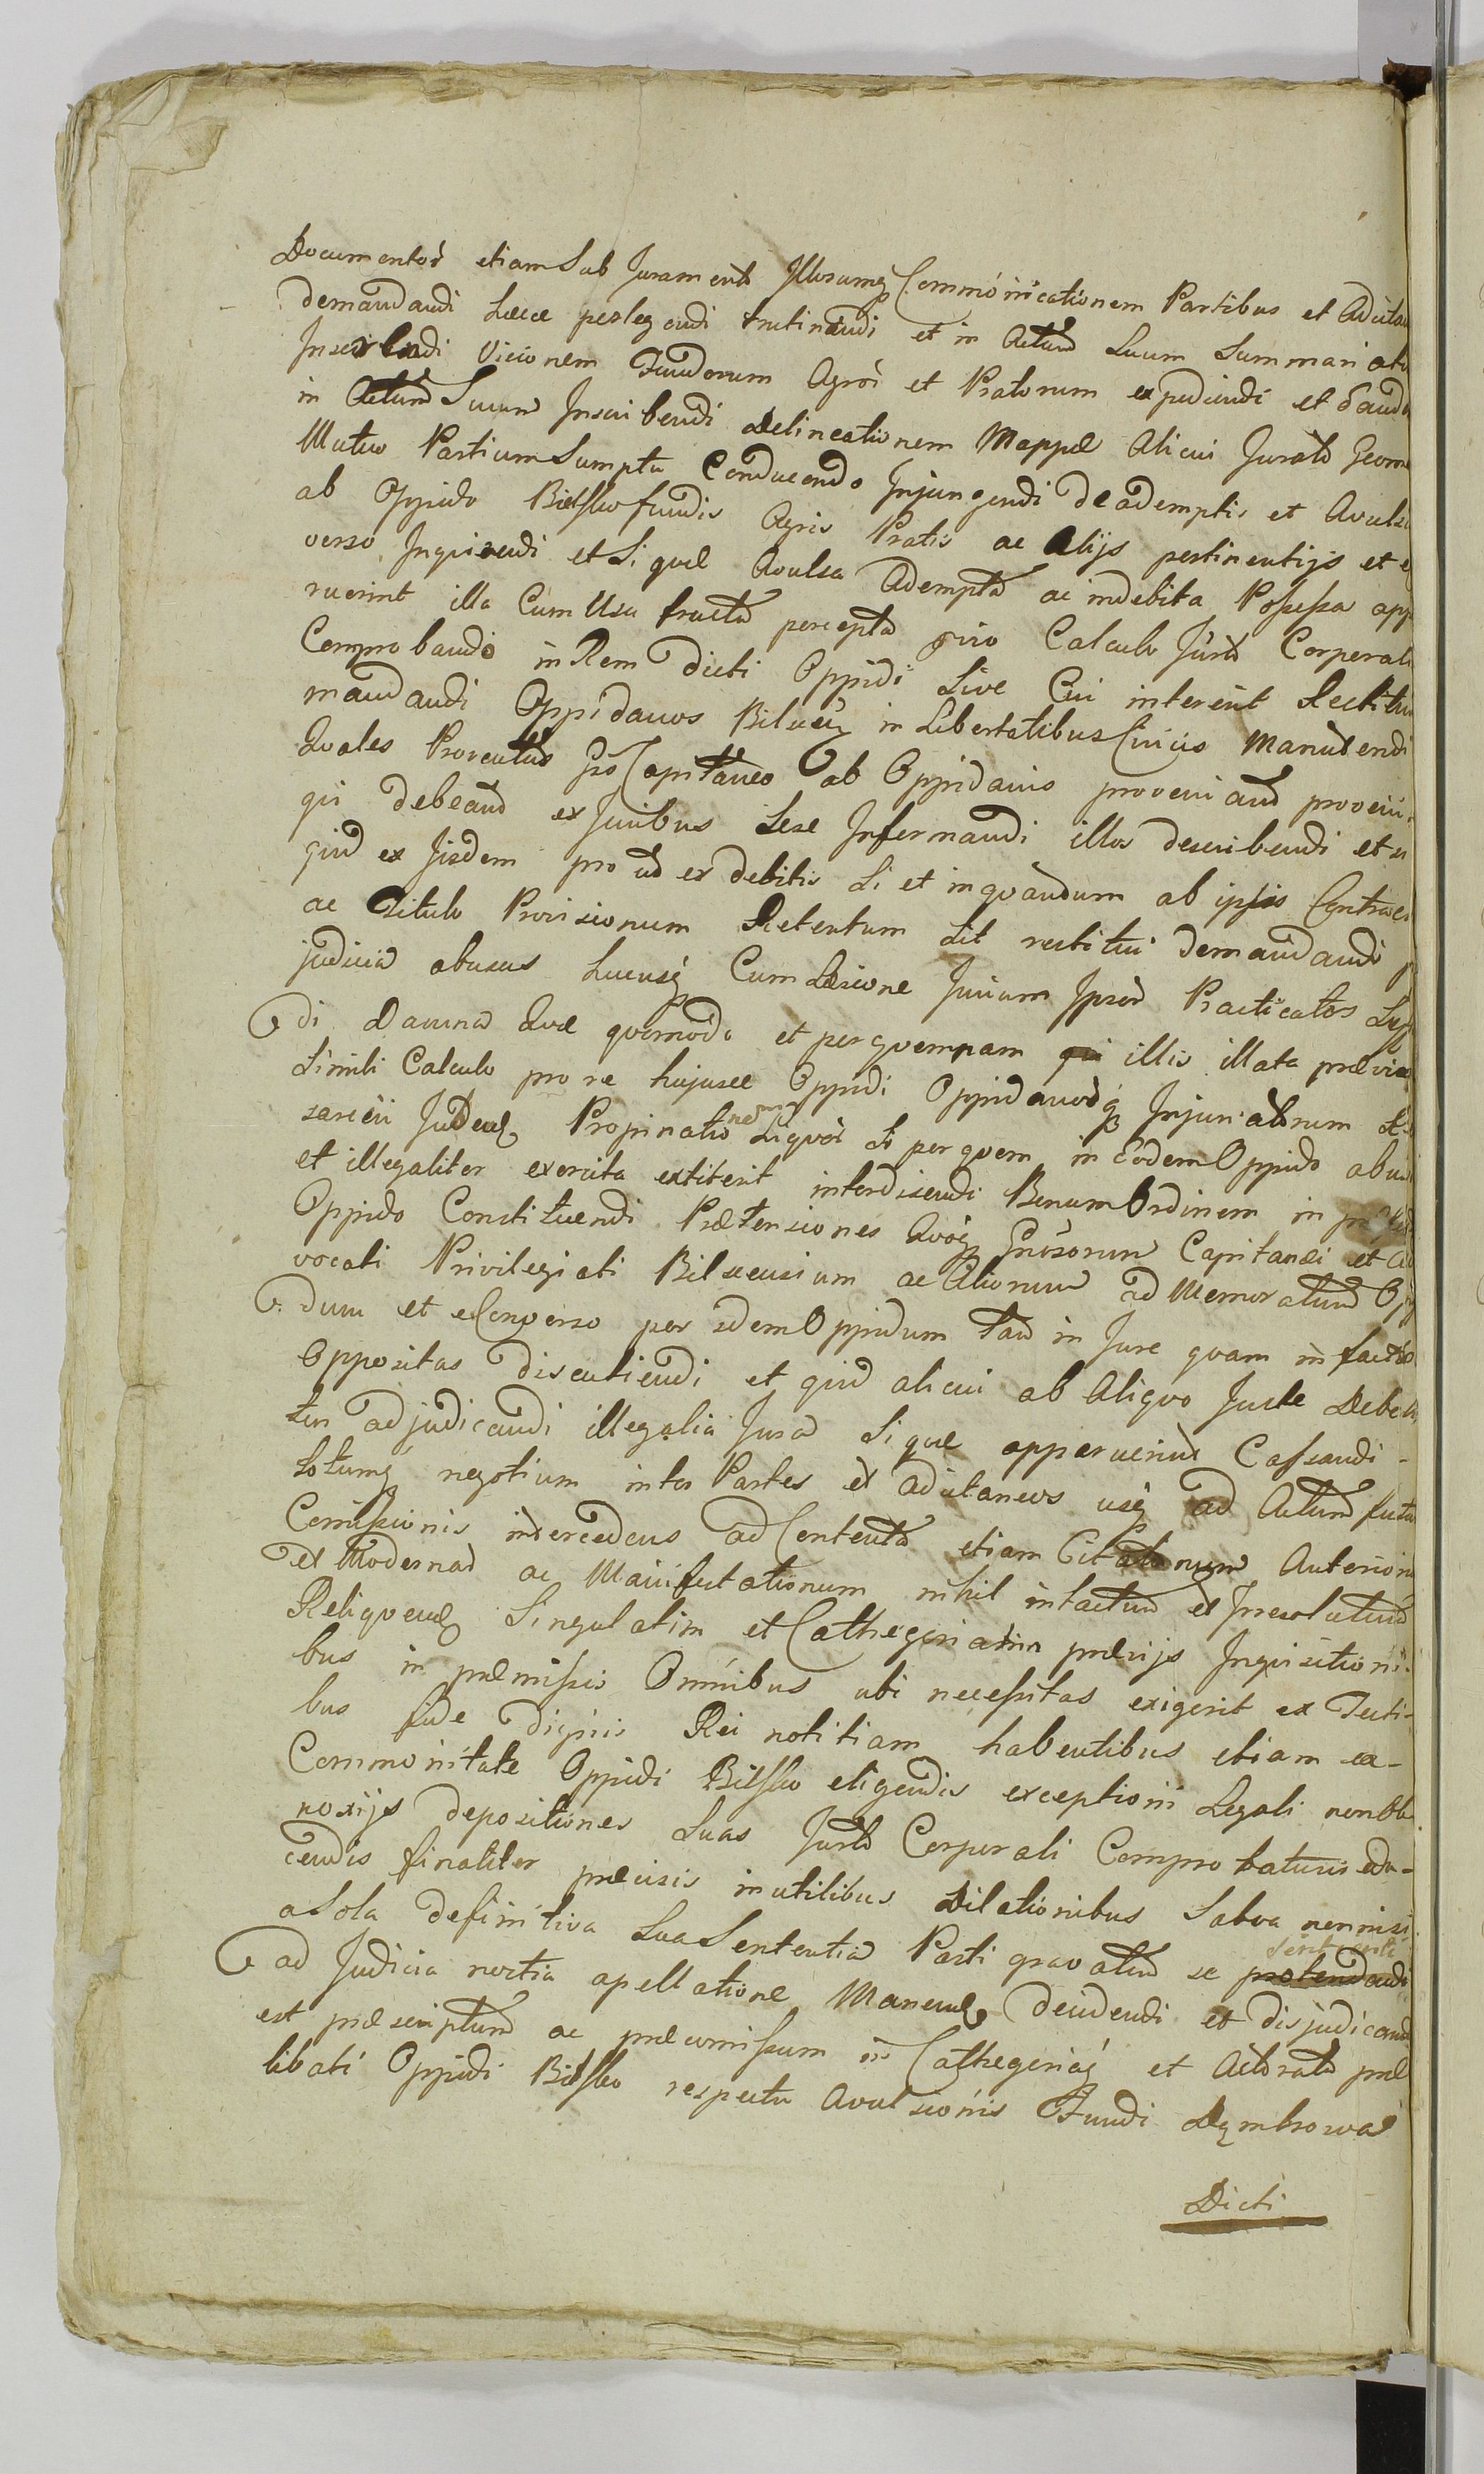 Documentor̀ etiam Sub Juramento Illorumq Commonicationem Partibus et Adcita
demandandi Luce perlegendi trutinandi et in Actum Suum Summari ati
Inscribendi Visionem Fundorum Agror̀ et Pratorum expediendi et eand
in Actum Suum Inscribendi Delineationem Mappæ Alicui Jurato Geome
Mutuo Partium Sumptu Conducendo Injungendi de ademptis et Avulsi
ab Oppido Bielsko fundis Agris Pratis ac Alijs pertinentijs et e
verso Inquirendi et Si quæ Avulsa Adempta ac indebite Possessa app
ruerint illa Cum Usu fructu percepto prio Calculo Jurto Corporali
Comprobando in Rem dicti Oppidi Sive Cui intererit Restitui
mandandi Oppidanos Bilscen in Libertatibus Civicis Manutendi
Quales Proventus pro Capitaneo ab Oppidanis proveniant proveni
qui debeant ex Juribus Sese Informandi illos describendi et si
quid ex Iisdem pro ut ex debitis Si et in quantum ab ipsis Contra
ac titulo Provisionum Retentum sit restitui demandandi p
judicia abusus hucusq Cum Læsione Jurium Ipsor̀ Practicatos Lu
di Damna Quæ quomodo et per quempiam illis illata prævia
Simili Calculo pro re hujusce Oppidi Oppidanorq Injuriatorum
sarciri Judeaq Propinationem Liquor̀ Si per quem in Eodem Oppido abu
et illegaliter exercita extiterit interdicendi Bonum Ordinem in
Oppido Constituendi Prætensiones Quoq Grosorum Capitanei et A
vocati Privilegiati Bilscensium ac Aliorum ad Memoratum Op
dum et e Converso per idem Oppidum tam in Jure quam in facto
Oppositas discutiendi et quid alicui ab Aliquo Juste Debe
tur adjudicandi illegalia Jura Si quæ apparuerint Cassandi
totumq negotium inter Partes et adcitaneos usq ad Actum futu
Comissionis intercedens ad Contenta etiam Citationum Anterior
et Modernar̀ ac Manifestationum nihil intactum et Irresolutum
Relinquendo Singulatim et Cathegoriatim prævijs Inquisitioni-
bus in præmissis Omnibus ubi necessitas exigerit ex Testi-
bus fide dignis Rei notitiam habentibus etiam ex-
Commonitate Oppidi Bielsko eligendis exceptioni Legali non ob
noxijs depositiones Suas Jurto Corporali Comprobaturis edu-
cendis finaliter præcisis inutilibus Dilationibus Salva nonnisi
a Sola definitiva Sua Sententia Parti gravatam se sentienti
ad Judicia nostra apellatione Manente decidendi et disjudicand
est præscriptum ac præcomissum in Cathegorijs et Actoratu præ
libati Oppidi Bielsko respectu Avulsionis Fundi Dąmbrowa
Dicti